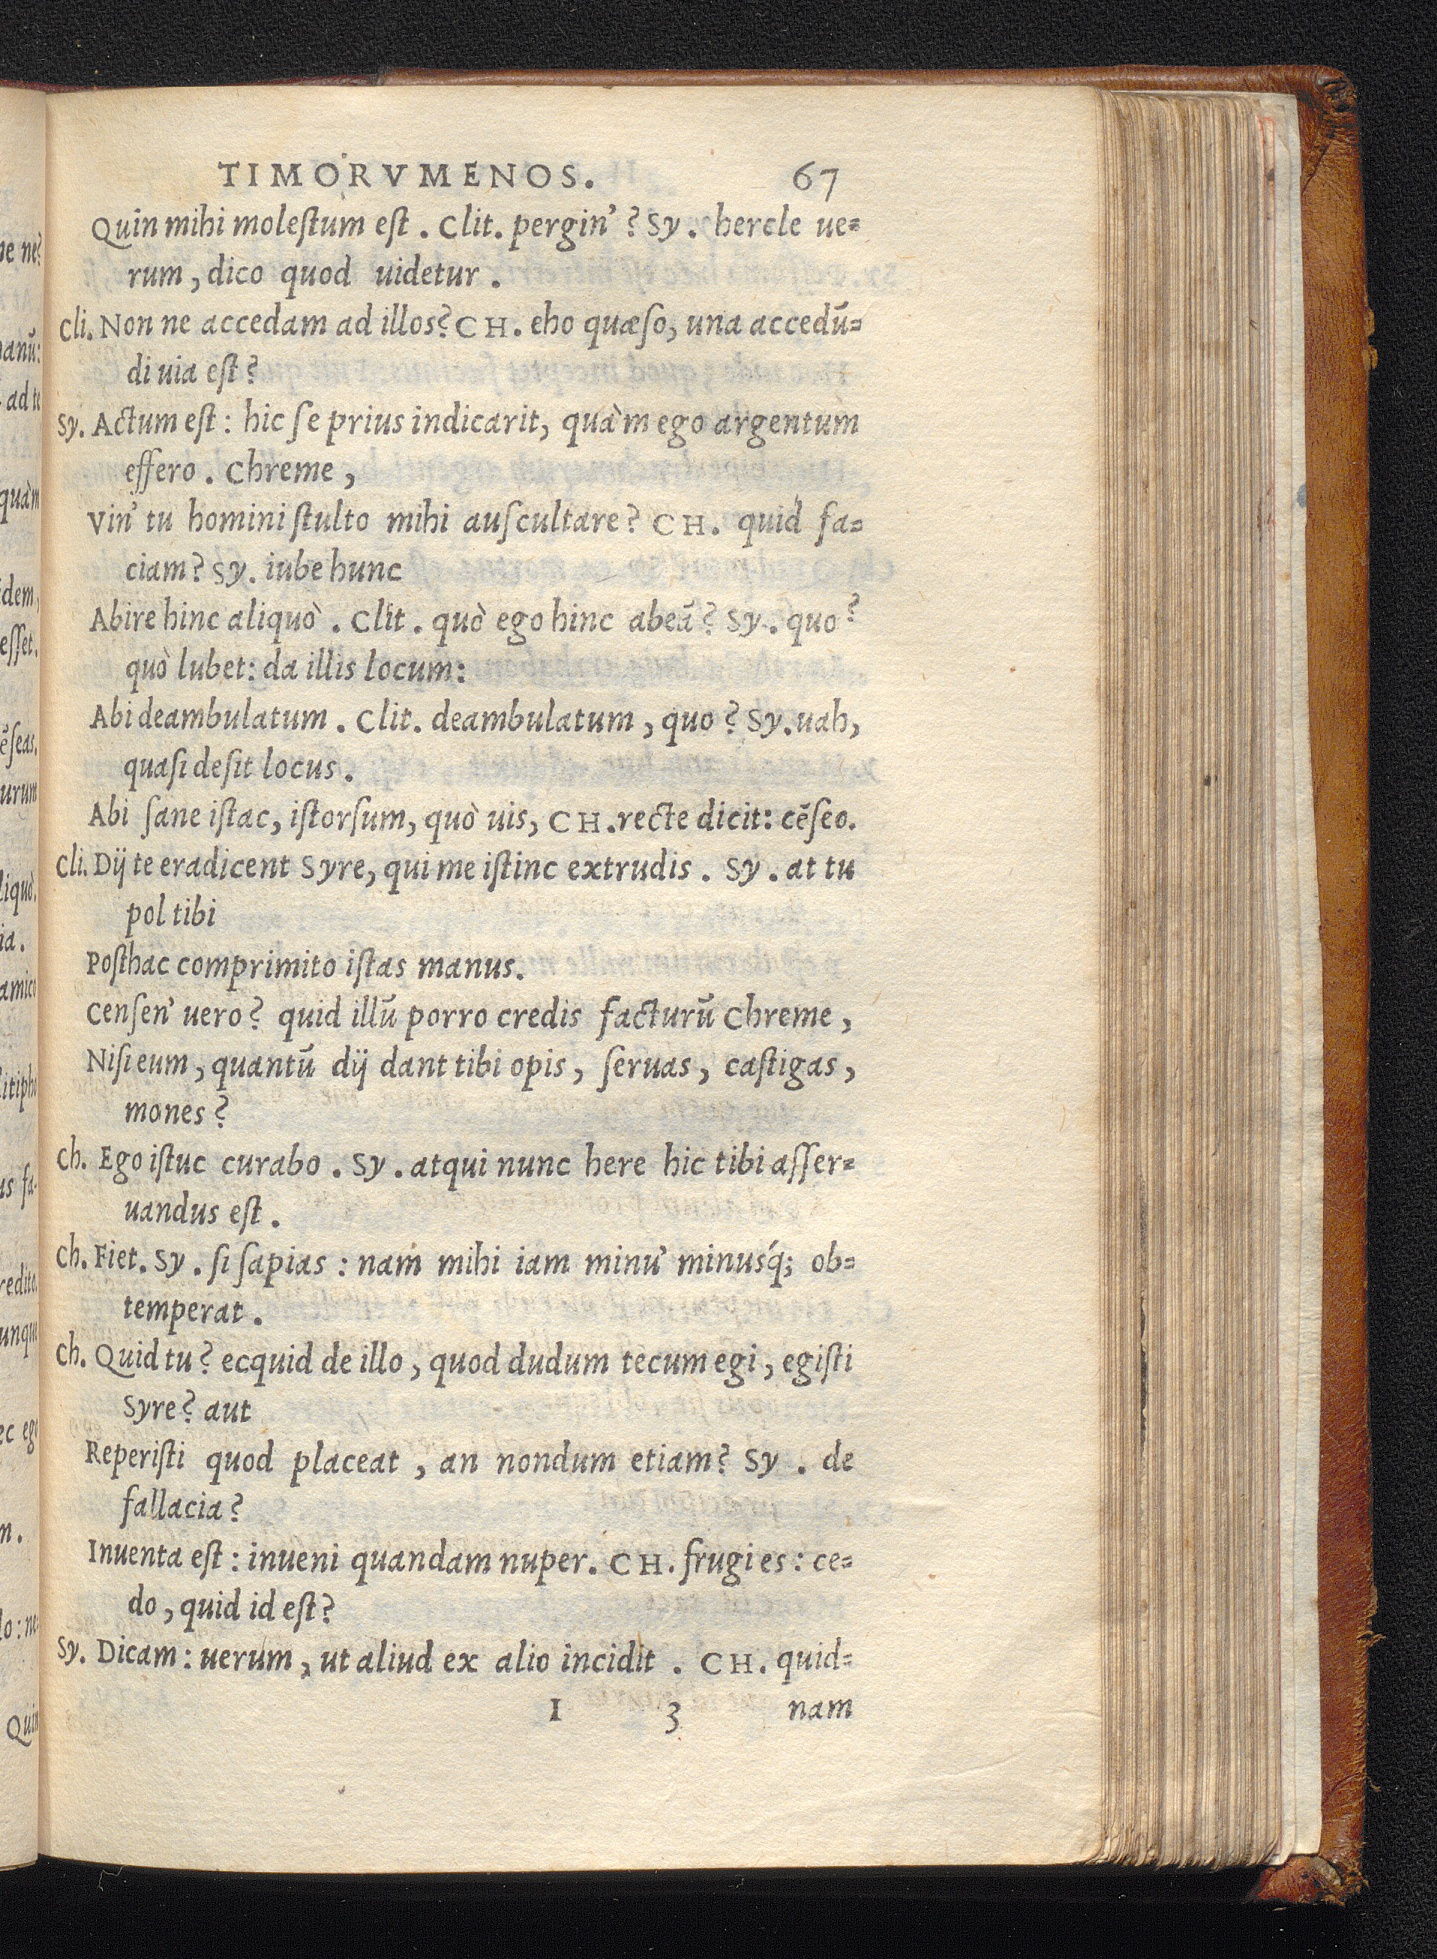 TIMORVMENOS. 67
Quin mihi molestum est. Clit. pergin'? Sy. hercle ue=
rum, dico quod uidetur.
Cli. Non ne accedam ad illos? CH. eho quæso, una accedū=
di uia est?
Sy. Actum est: hic se prius indicarit, quàm ego argentum
effero. Chreme,
Vin' tu homini stulto mihi auscultare? CH. quid fa=
ciam? Sy. iube hunc
Abire hinc aliquò. Clit. quò ego hinc abeā? Sy. quo?
quò lubet: da illis locum:
Abi deambulatum. Clit. deambulatum, quo? Sy. uah,
quasi desit locus.
Abi sane istac, istorsum, quò uis, CH. recte dicit: cēseo.
Cli. Dij te eradicent Syre, qui me istinc extrudis. Sy. at tu
pol tibi
Posthac comprimito istas manus.
Censen' uero? quid illū porro credis facturū Chreme,
Nisi eum, quantū dij dant tibi opis, seruas, castigas,
mones?
Ch. Ego istuc curabo. Sy. atqui nunc here hic tibi asser=
uandus est.
Ch. Fiet. Sy. si sapias: nam mihi iam minu' minusq́; ob=
temperat.
Ch. Quid tu? ecquid de illo, quod dudum tecum egi, egisti
Syre? aut
Reperisti quod placeat, an nondum etiam? Sy. de
fallacia?
Inuenta est: inueni quandam nuper. CH. frugi es: ce=
do, quid id est?
Sy. Dicam: uerum, ut aliud ex alio incidit. CH. quid=
I 3 nam